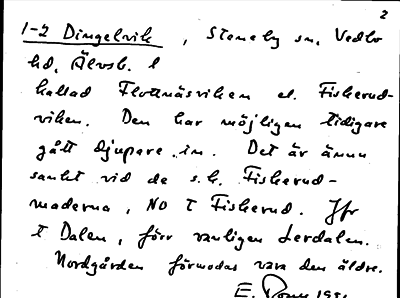 2
1-2 Dingelvik, Steneby sn, Vedbo
hd, Älvsb. l
kallad Flottnäsviken el. Fiskerud-
viken. Den har möjligen tidigare
gått djupare in. Det är ännu
sankt vid de s.k. Fiskerud-
maderna, NO T Fiskerud. Jfr
t Dalen, förr vanligen Lerdalen.
Nordgården förmodas vara den äldre.
E.